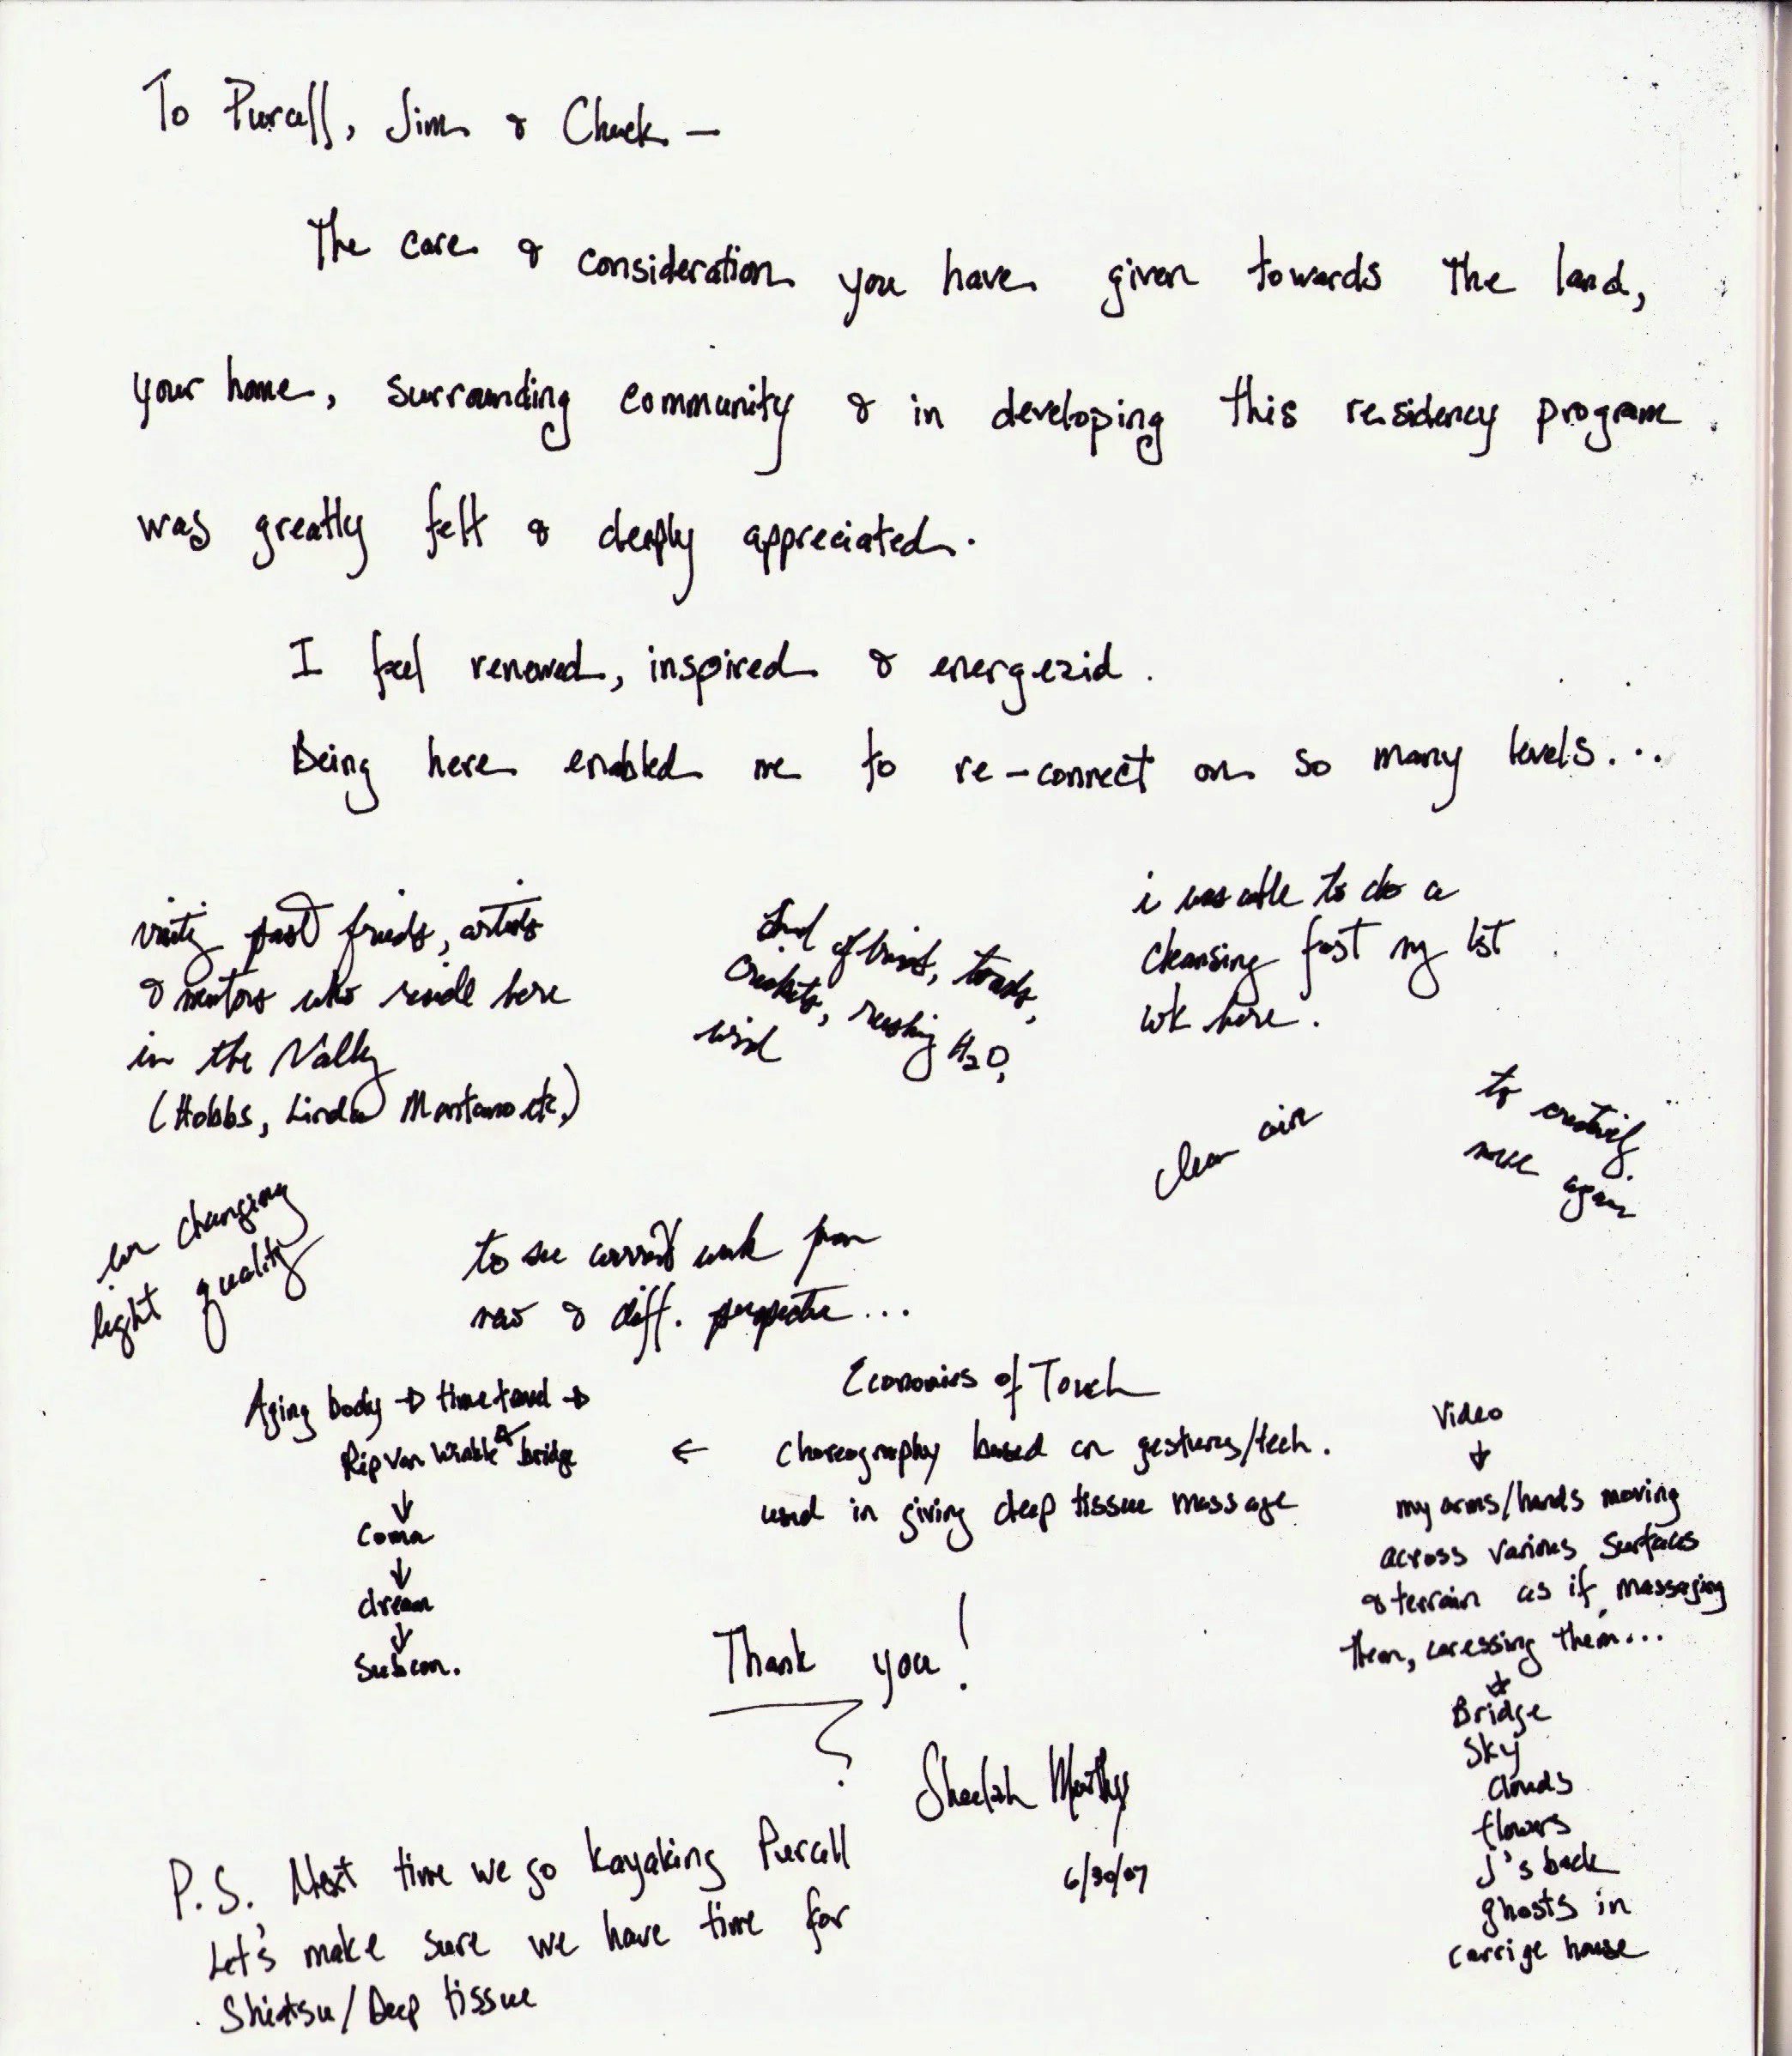 To Purcell, Jim & Chuck –
The care & consideration you have given towards the land,
your home, surrounding community & in developing this residency program
was greatly felt & deeply appreciated.
I feel renewed, inspired & energezid.
Being here enabled me to re-connect on so many levels...
past friends, artists
& mentors who reside here
in the Valley
(Hobbs, Linda Montano etc.)
of birds, toads,
crickets, rushing H₂O,
wind
i was able to do a
cleansing fast my 1st
wk here.
clean air
to creativity
once again
ever changing
light quality
to see current work from
new & diff. perspective...
Aging body → time travel →
Rip Van Winkle bridge
↓
Coma
↓
dream
↓
Subcon.
Economies of Touch
← Choreography based on gestures/tech.
used in giving deep tissue massage
Video
↓
my arms/hands moving
across various surfaces
& terrain as if massaging
them, caressing them...
↓
Bridge
Sky
Clouds
flowers
J's back
ghosts in
carrige house
Thank you!
Sheelah
6/30/07
P.S. Next time we go kayaking Purcell
Let's make sure we have time for
Shiatsu/Deep tissue